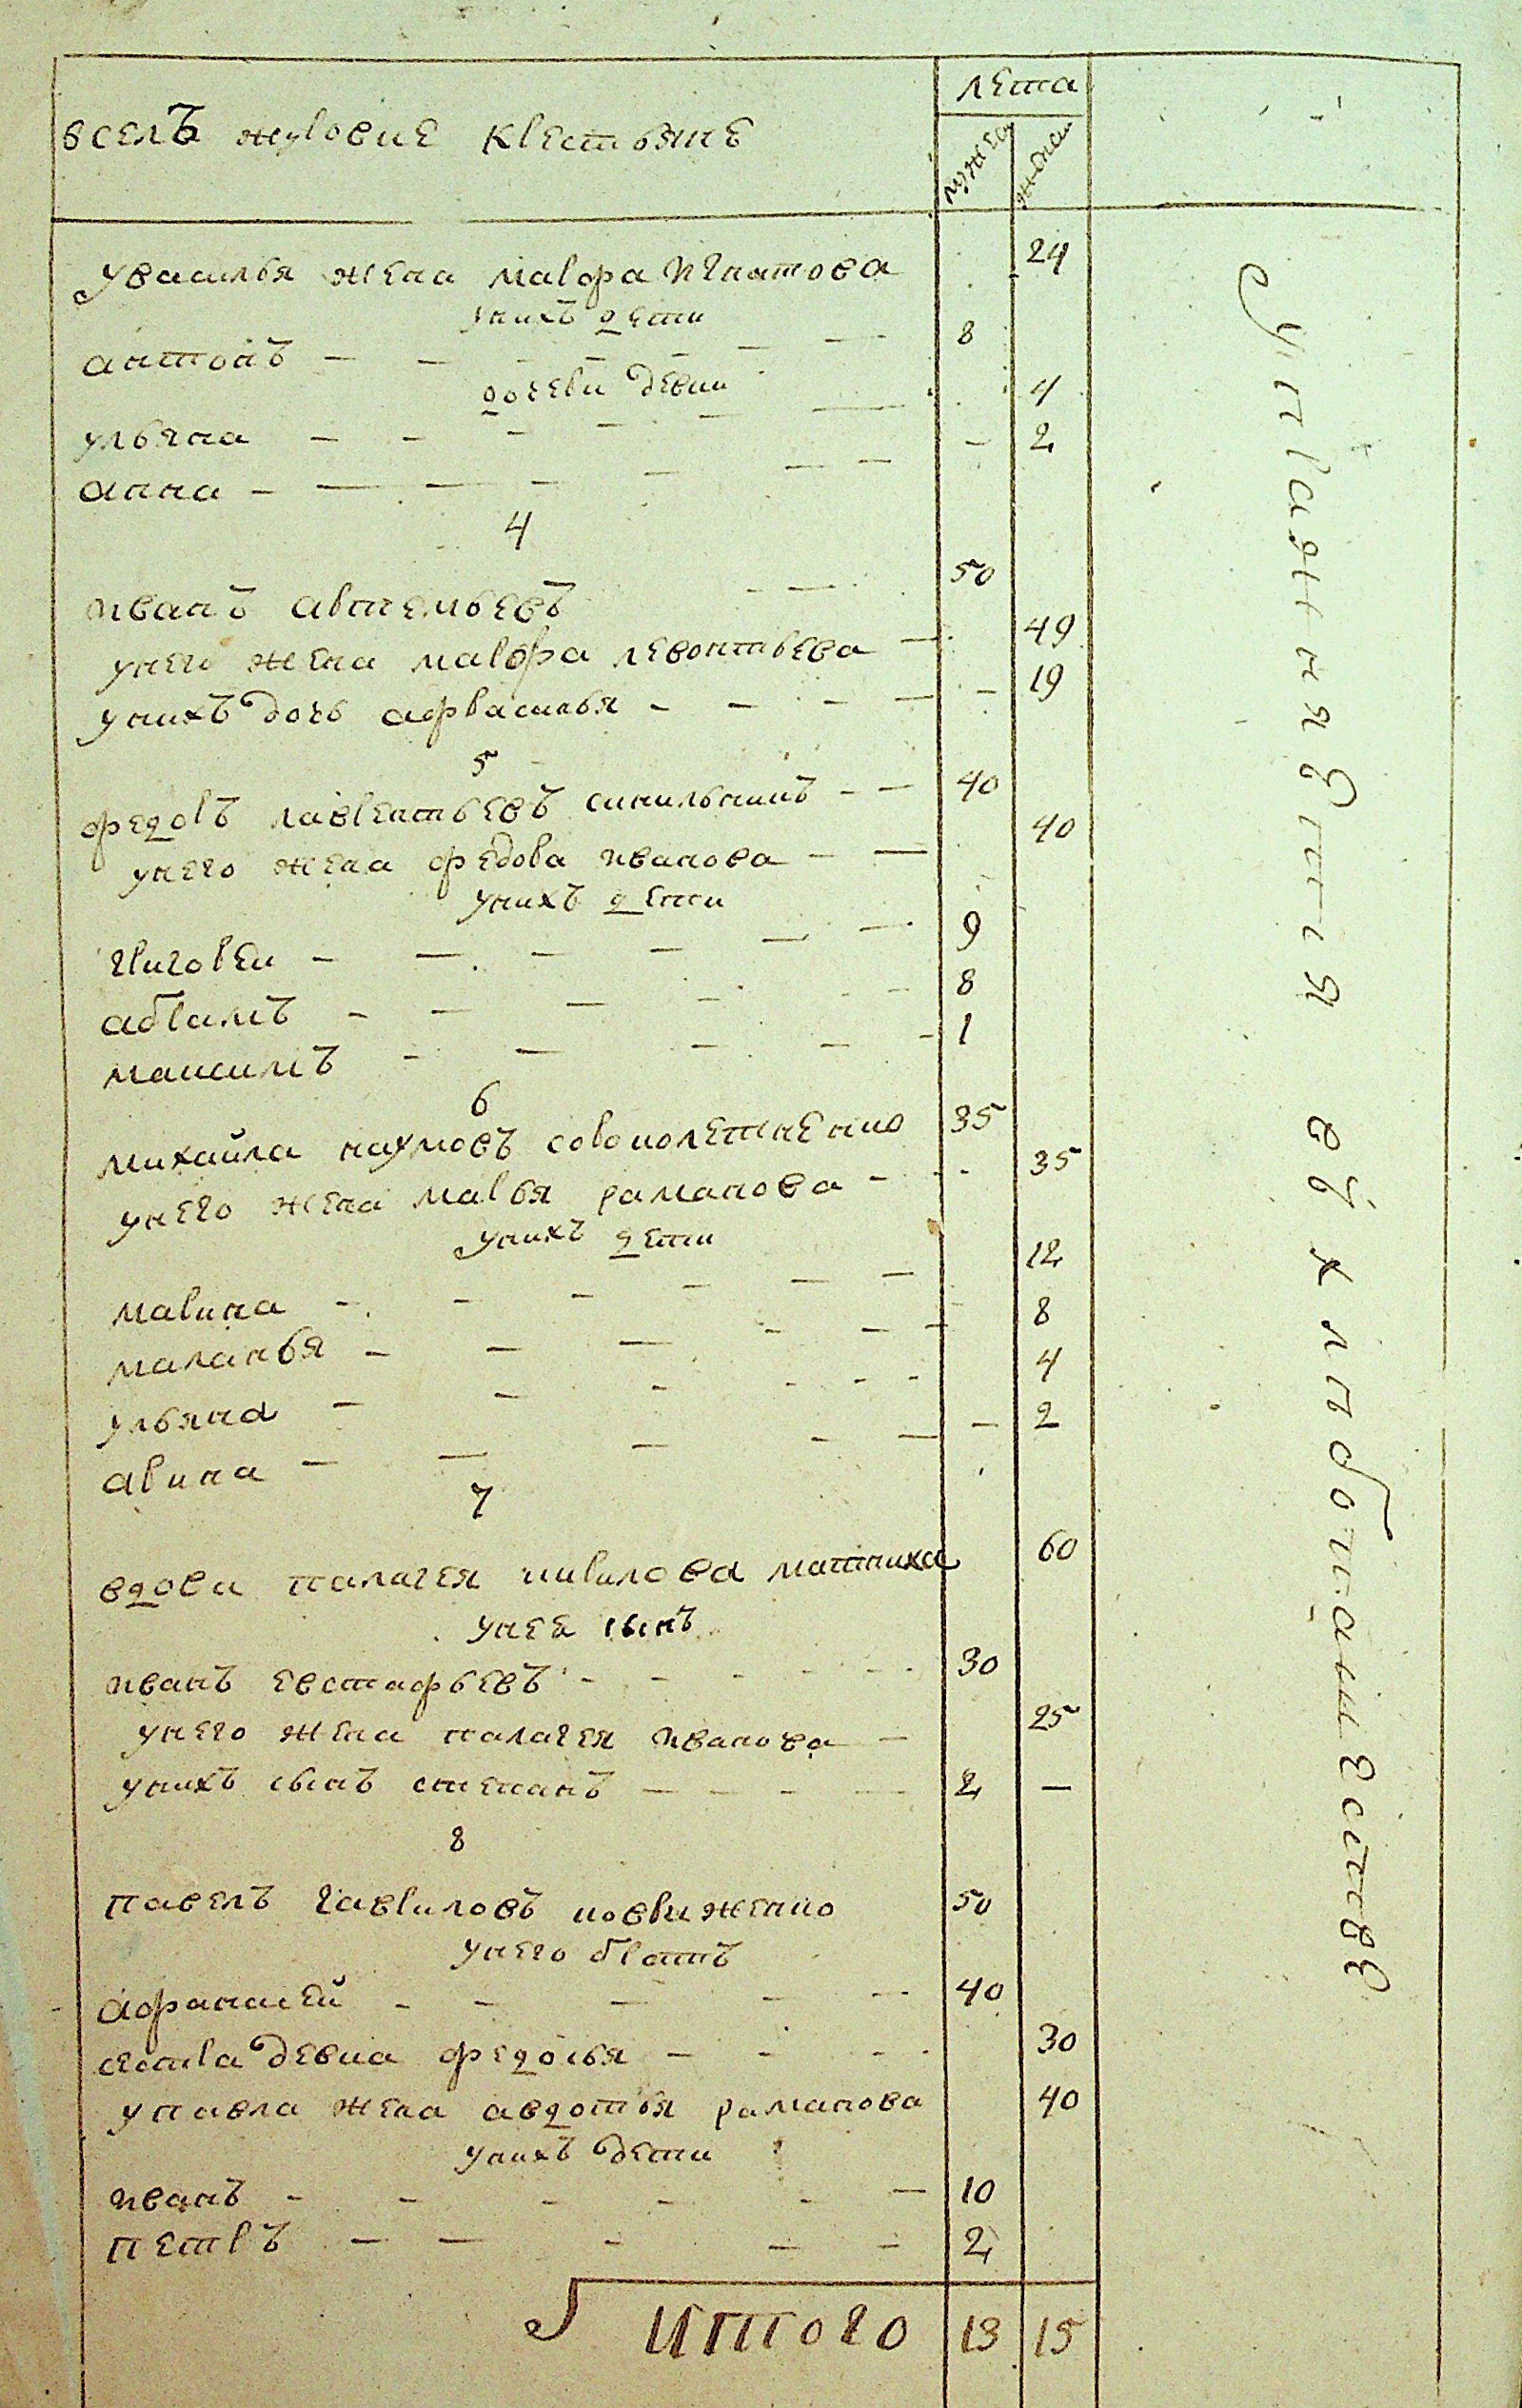 вселъ журовке крестьяне
лета
мужеск
женск
увасилья жена марфа игнатова 24
унихъ дети
антонъ 8
дочери девки
ульяна 4
анна 2
4
иванъ артемьевъ 50
унего жена марфа левонтьева 49
унихъ дочь афрасинья 19
5
федоръ лаврентьевъ синильникъ 40
унего жена федора иванова 40
унихъ дети
григореи 9
абрамъ 8
максимъ 1
6
михаила наумовъ 35
унего жена марья раманова 35
унихъ дети
марина 12
маланья 8
ульяна 4
арина 2
7
вдова палагея кирилова 60
унее сынъ
иванъ евстафьевъ 30
унего жена палагея иванова 25
унихъ сынъ степанъ 2
8
павелъ гавриловъ 50
унего братъ
афанасей 40
сестра девка федосья 30
упавла жена авдотья раманова 40
унихъ дети
иванъ 10
петръ 2
итого 13 15